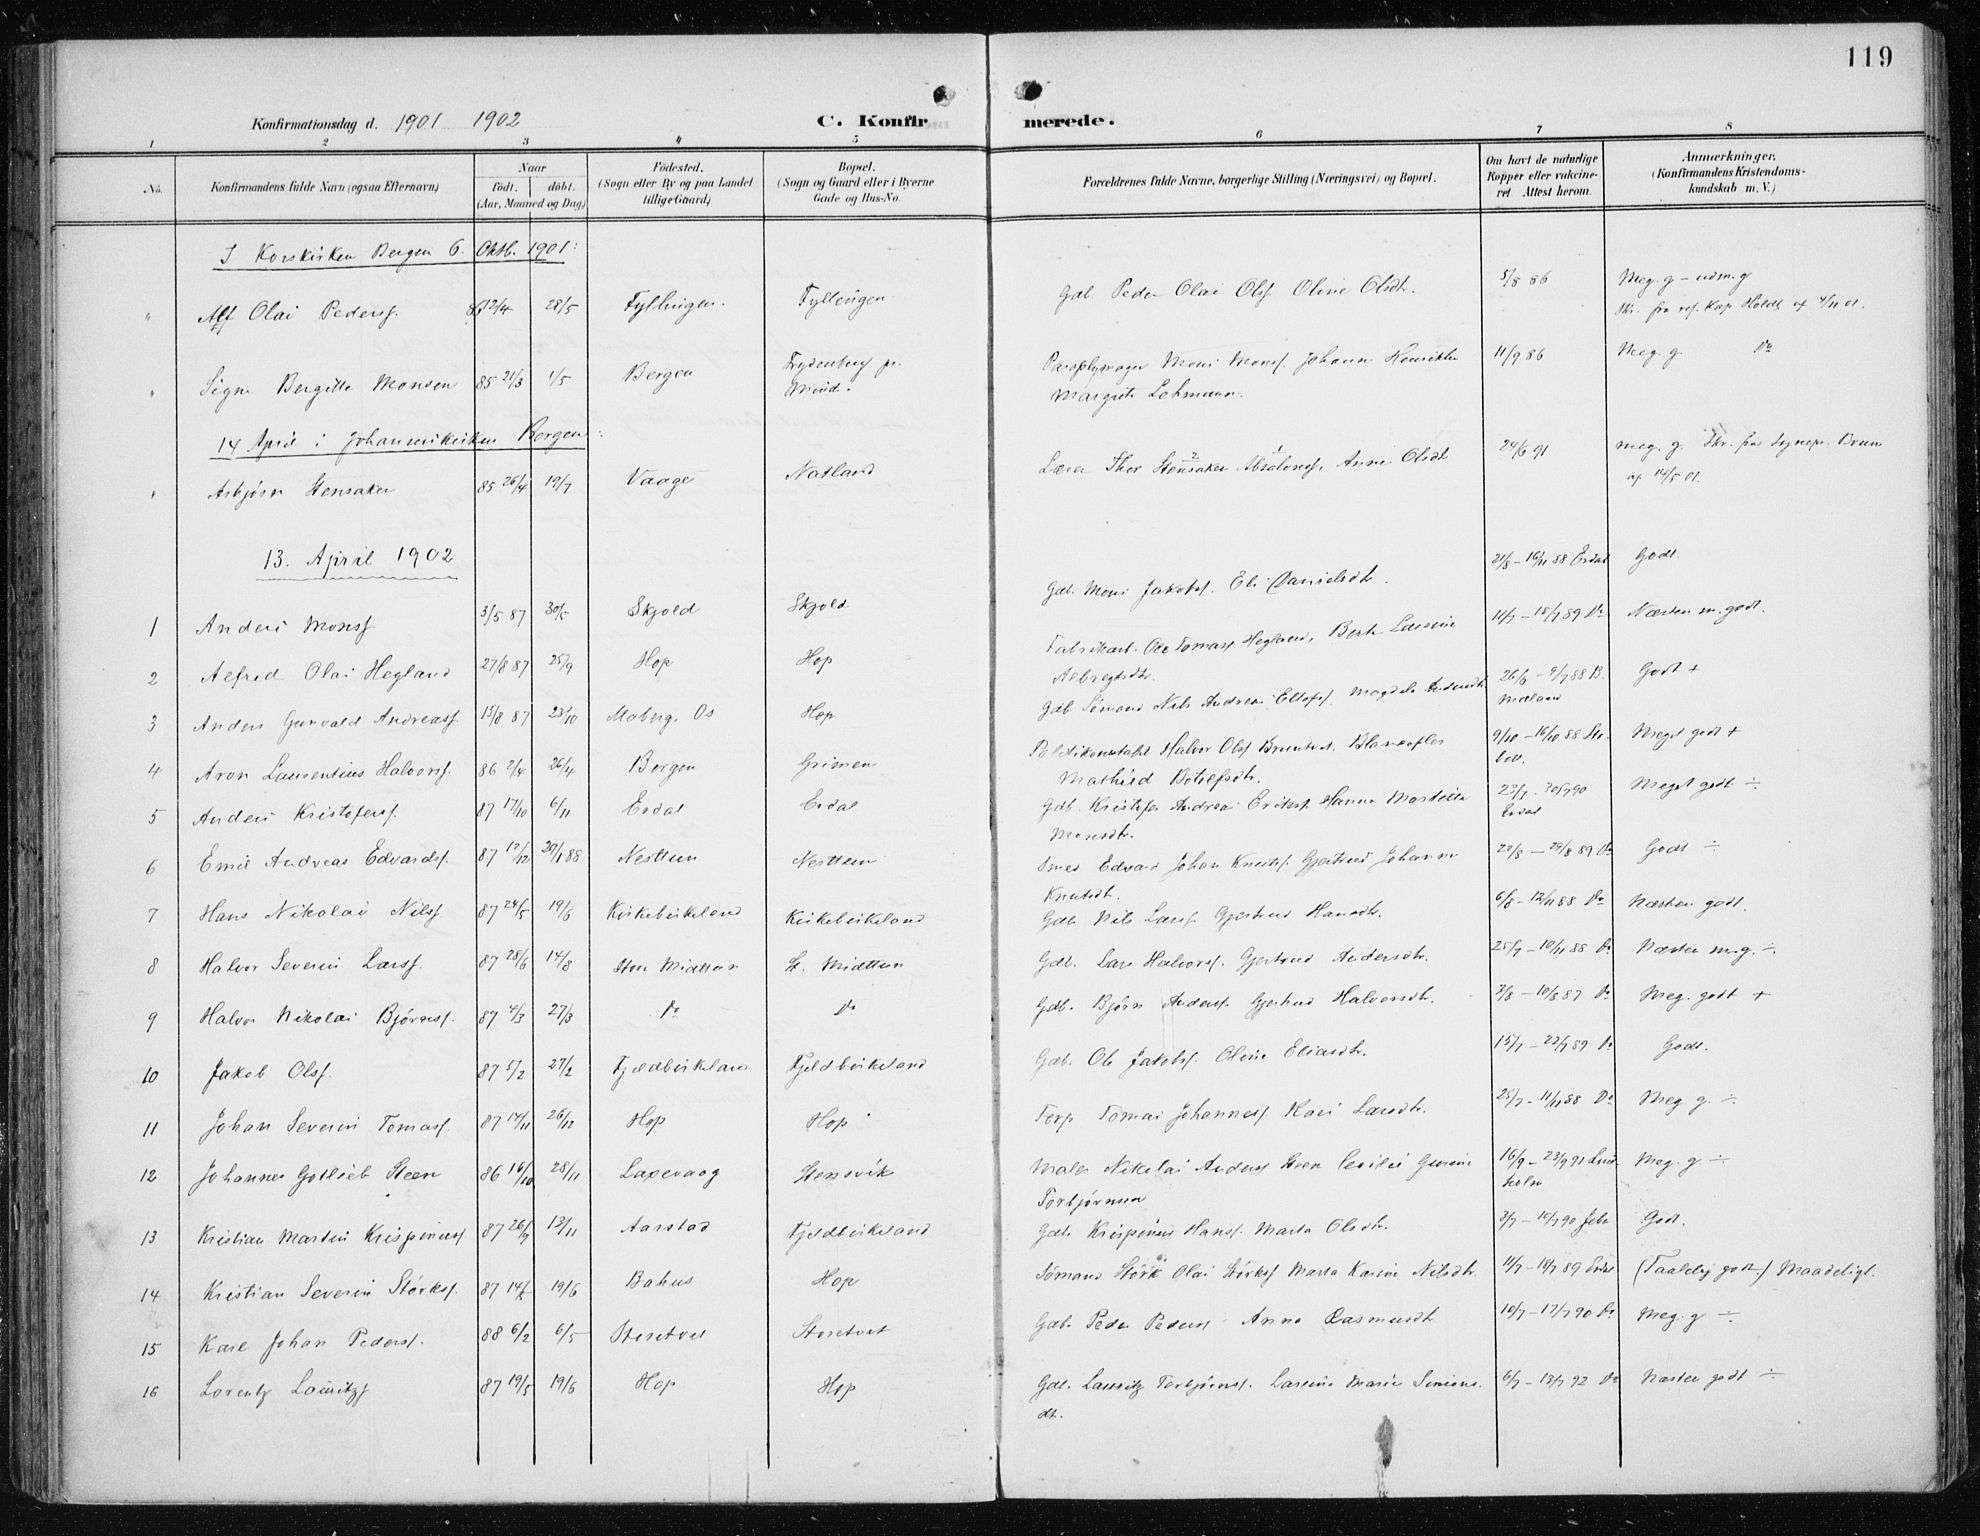 119
Konfirmationsdag d. 1901 1902
C. Konfirmerede.
1 2 3 4 5 6 7 8
No.
Konfirmandens fulde Navn (ogsaa Efternavn)
Naar
født. døbt.
(Aar, Maaned og Dag)
Fødested.
(Sogn eller By og paa Landet
tillige Gaard)
Bopæl.
(Sogn og Gaard eller i Byerne
Gade og Hus-No.
Forældrenes fulde Navne, borgerlige Stilling (Næringsvei) og Bopæl.
Om havt de naturlige
Kopper eller vakcine-
ret. Attest herom.
Anmærkninger.
(Konfirmandens Kristendoms-
kundskab m. V.)
I Korskirken Bergen 6. Oktb. 1901:
" Alf Olai Pedersf. 86 12/4 28/5 Fyllingen. Fyllingen Gdb. Peder Olai Olsf. Oline Olsdtr. 5/8 86 Meg. g - udm. g
Skr. fra res. Kap Holdt af 4/11 01.
" Signe Bergitte Monsen 85 21/3 1/5 Bergen Frydenberg pr. Mons Monsf. Johanne 11/9 86 Meg. g. Do
Mind. Margrete Lohmann.
14 April i Johanneskirken Bergen:
" Asbjørn Stensaker 85 26/4 19/7 Vaage Natland Lærer Thor Stensaker Absalonsf. Anne Olsdt 24/6 91 meg. g. Skr. fra Sognepr. Bruun
af 14/5 01.
13. April 1902
1 Anders Monsf 3/5 87 30/5 Skjold Skjold Gdb. Mons Jakobsf. Eli Danielsdtr. 21/8 - 16/11 88 Erdal Godt.
2 Alfred Olai Hegland 27/8 87 25/9 Hop Hop Fabrikarb. Ole Tomasf Hegland, Berte Lausine 11/7 - 18/7 89 Do Næsten m. godt.
Albregtsdtr.
3 Anders Gunvald Andreasf. 15/8 87 23/10 Moberg, Os Hop Gdb Sømand Nils Andreas Ellefsf. Magdele Andersdtr 26/6 - 9/7 88 B. Godt +
Mæland
4 Aron Laurentius Halvorsf. 86 2/4 26/4 Bergen Grimen Politikonstabel Halvor Olsf 9/10 - 16/10 88 Meget godt +
Mathild Botolfsdtr.
5 Anders Kristofersf. 87 17/10 6/11 Erdal Erdal Gdb. Kristofer Andreas Eriksf. Hanna 23/7 - 30/7 90 Meget godt ÷
Monsdtr. Erdal
6 Emil Andreas Edvardsf. 87 12/12 29/1 88 Nesttun Nesttun Smed Edvard Johan Knutsf. Gjertrud Johanne 22/8 - 29/8 89 Do Godt ÷
Knutsdt.
7 Hans Nikolai Nilsf 87 24/5 19/6 Kirkebirkeland Kirkebirkeland Gdb. Nils Larsf. Gjertrud Hansdtr. 6/8 - 12/11 88 Do Næsten godt.
8 Halvor Severin Larsf. 87 28/6 14/8 Store Midttun St. Midttun Gdb. Lars Halvorsf. Gjertrud Andersdtr. 25/7 - 10/11 88 Do Næsten m. g. ÷
9 Halvor Nikolai Bjørnsf. 87 4/3 27/3 Do Do Gdb. Bjørn Andersf. Gjertrud Halvorsdtr. 3/8 - 10/8 87 Do Meg. godt +
10 Jakob Olsf. 87 5/2 27/2 Fjeldbirkeland Fjeldbirkeland Gdb. Ole Jakobsf. Oline Eliasdtr. 15/7 - 22/7 89 Do Godt.
11 Johan Severin Tomasf. 87 14/11 26/12 Hop Hop Tomas Johannesf. Kari Larsdtr. 25/7 - 11/11 88 Do Meg g. ÷
12 Johannes Gotlieb Steen 86 16/10 28/11 Laxevaag Stensvik Maler Nikolai Andersf Steen Cecilie Gurine 16/9 - 23/9 91 Lind- Meg. g ÷
Torbjørnsen holm
13 Kristian Martin Krispinusf 87 26/9 13/11 Aarstad Fjeldbirkeland Gdb. Krispinus Hansf. Marta Olsdtr. 3/7 - 10/7 90 Godt.
14 Kristian Severin Størksf. 87 14/5 19/6 Bohus Hop Sømand Størk Olai Størksf Marta Karine Nilsdtr. 11/7 - 18/7 89 Erdal (Taalelig godt) Maadeligt.
15 Karl Johan Pedersf. 88 6/2 6/5 Storetvet Storetvet Gdb. Peder Pedersf Anna Rasmusdt 10/7 - 17/7 90 Do Meg. g ÷
16 Lorentz Lauritzf 87 19/5 19/6 Hop Hop Gdb. Lauritz Torbjørnsf. Larsine Marie Simons- 6/7 - 13/7 92 Do Næsten godt ÷
dt.